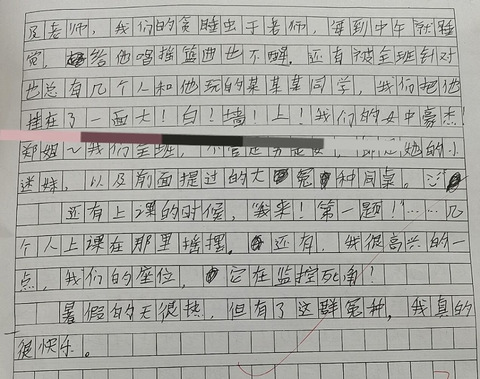 足老师，我们的贪睡虫于老师，每到中午就睡
觉，给他唱摇篮曲也不醒。还有被全班针对
也总有几个人和他玩的某某某同学，我们把他
挂在了一面大！白！墙！上！我们的女中豪杰！
郑姐～我们全班，不管是男是女，都是她的小
迷妹，以及前面提过的大冤种同桌。
还有上课的时候，“我来！第一题！”……几
个人上课在那里摇摆。还有，我很高兴的一
点，我们的座位，它在监控死角！
暑假的天很热，但有了这群冤种，我真的
很快乐。